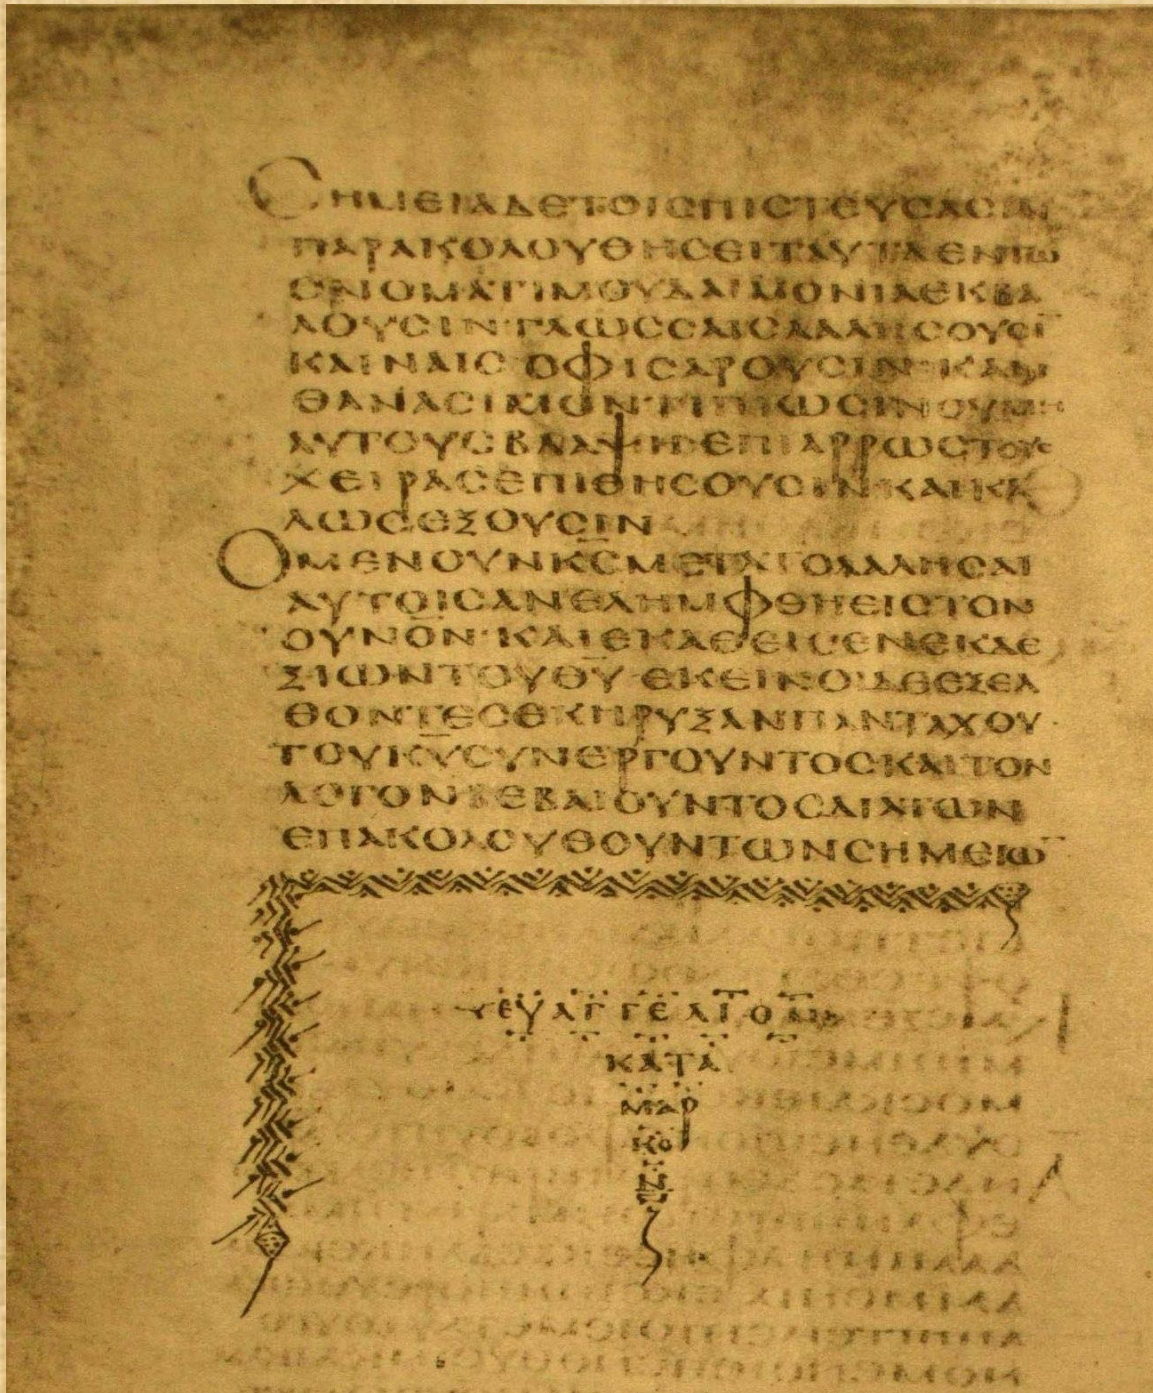 ϹΗΜΕΙΑΔΕΤΟΙϹΠΙϹΤΕΥϹΑϹΙΝ
ΠΑΡΑΚΟΛΟΥΘΗϹΕΙΤΑΥΤΑΕΝΤΩ
ΟΝΟΜΑΤΙΜΟΥΔΑΙΜΟΝΙΑΕΚΒΑ
ΛΟΥϹΙΝΓΛΩϹϹΑΙϹΛΑΛΗϹΟΥϹΙ̅
ΚΑΙΝΑΙϹ ΟΦΙϹΑΡΟΥϹΙΝ·ΚΑΝ
ΘΑΝΑϹΙΜΟΝΤΙΠΙΩϹΙΝΟΥΜΗ
ΑΥΤΟΥϹΒΛΑΨΗ·ΕΠΙΑΡΡΩϹΤΟΥϹ
ΧΕΙΡΑϹΕΠΙΘΗϹΟΥϹΙΝ·ΚΑΙΚΑ
ΛΩϹΕΞΟΥϹΙΝ
ΟΜΕΝΟΥΝΚ̅Ϲ̅ΜΕΤΑΤΟΛΑΛΗϹΑΙ
ΑΥΤΟΙϹΑΝΕΛΗΜΦΘΗΕΙϹΤΟΝ
ΟΥΝΟ̅Ν̅·ΚΑΙΕΚΑΘΕΙϹΕΝΕΚΔΕ
ΞΙΩΝΤΟΥΘ̅Υ̅ ΕΚΕΙΝΟΙΔΕΕΞΕΛ
ΘΟΝΤΕϹΕΚΗΡΥΞΑΝΠΑΝΤΑΧΟΥ·
ΤΟΥΚ̅Υ̅ϹΥΝΕΡΓΟΥΝΤΟϹΚΑΙΤΟΝ
ΛΟΓΟΝΒΕΒΑΙΟΥΝΤΟϹΔΙΑΤΩΝ
ΕΠΑΚΟΛΟΥΘΟΥΝΤΩΝϹΗΜΕΙΩ̅
ΕΥΑΓΓΕΛΙΟΝ
ΚΑΤΑ
ΜΑΡ
ΚΟ
Ν